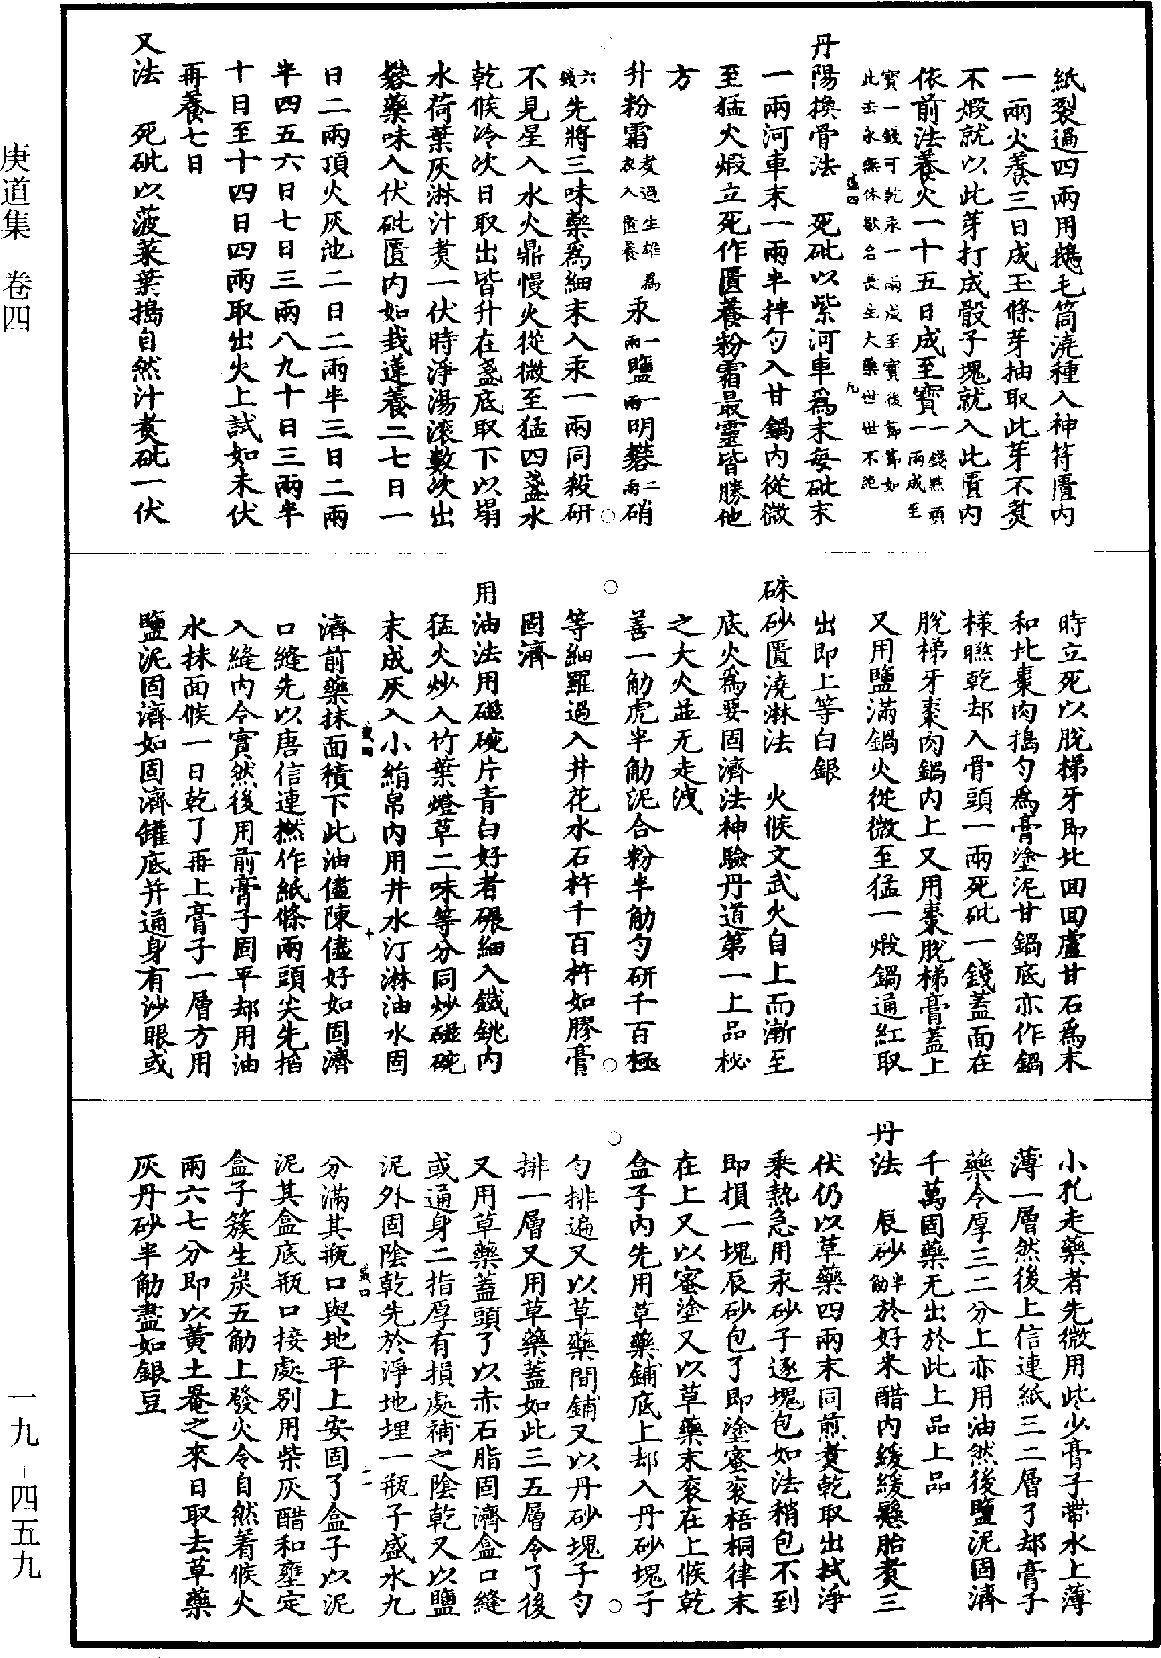 庚道集　卷四
紙裂過四兩用鵝毛筒澆種入神符匱内
一兩火養三日成玉條芽抽取此芽不炙
不煅就以此芽打成骰子塊就入此匱内
依前法養火一十五日成至寶一錢點頑一兩成至
寶一錢可乾汞一兩成至寶後節節如此去永無休歇名長生大藥世世不絶
丹陽換骨法　死砒以紫河車爲末每砒末
一兩河車末一兩半拌勻入甘鍋内從微
至猛火煅立死作匱養粉霜最靈皆勝他
方
升粉霜煮過生雄爲衣入匱養汞一兩鹽一兩明礬二兩硝
六錢先將三味藥爲細末入汞一兩同殺研
不見星入水火鼎慢火從微至猛四盞水
乾候冷次日取出皆升在盞底取下以塌
水荷葉灰淋汁煮一伏時淨湯滚數次出
礬藥味入伏砒匱内如栽蓮養二七日一
日二兩頂火灰池二日二兩半三日二兩
半四五六日七日三兩八九十日三兩半
十日至十四日四兩取出火上試如未伏
再養七日
又法　死砒以菠菜葉搗自然汁煮砒一伏
時立死以脱梯牙即北回回盧甘石爲末
和北棗肉搗勺爲膏塗泥甘鍋底亦作鍋
様㬠乾却入骨頭一兩死砒一錢蓋面在
脱梯牙棗肉鍋内上又用棗脱梯膏蓋上
又用鹽滿鍋火從微至猛一煅鍋通紅取
出即上等白銀
硃砂匱澆淋法　火候文武火自上而漸至
底火爲要固濟法神驗丹道第一上品秘
之大火並无走洩
善一觔虎半觔泥合粉半觔勺研千百極
等細羅過入井花水石杵千百杵如膠膏
固濟
用油法用磁碗片青白好者碾細入鐵銚内
猛火炒入竹葉燈草二味等分同炒磁碗
末成灰入小絹帛内用井水汀淋油水固
濟前藥抹面積下此油儘陳儘好如固濟
口縫先以唐信連撚作紙條兩頭尖先搯
入縫内令實然後用前膏子固平却用油
水抹面候一日乾了再上膏子一層方用
鹽泥固濟如固濟罐底并通身有沙眼或
小孔走藥者先微用此少膏子帶水上薄
薄一層然後上信連紙三二層了却膏子
藥令厚三二分上亦用油然後鹽泥固濟
千萬固藥无出於此上品上品
丹法　辰砂半觔於好米醋内緩緩懸胎煮三
伏仍以草藥四兩末同煎煮乾取出拭淨
乘熱急用汞砂子逐塊包如法稍包不到
即損一塊辰砂包了即塗蜜衮梧桐律末
在上又以蜜塗又以草藥末衮在上候乾
盒子内先用草藥鋪底上却入丹砂塊子
勻排遍又以草藥間鋪又以丹砂塊子勻
排一層又用草藥蓋如此三五層令了後
又用草藥蓋頭了以赤石脂固濟盒口縫
或通身二指厚有損處補之陰乾又以鹽
泥外固陰乾先於淨地埋一瓶子盛水九
分滿其瓶口與地平上安固了盒子以泥
泥其盒底瓶口接處别用柴灰醋和壅定
盒子簇生炭五觔上發火令自然着候火
兩六七分即以黄土罨之來日取去草藥
灰丹砂半觔盡如銀豆
一九－四五九